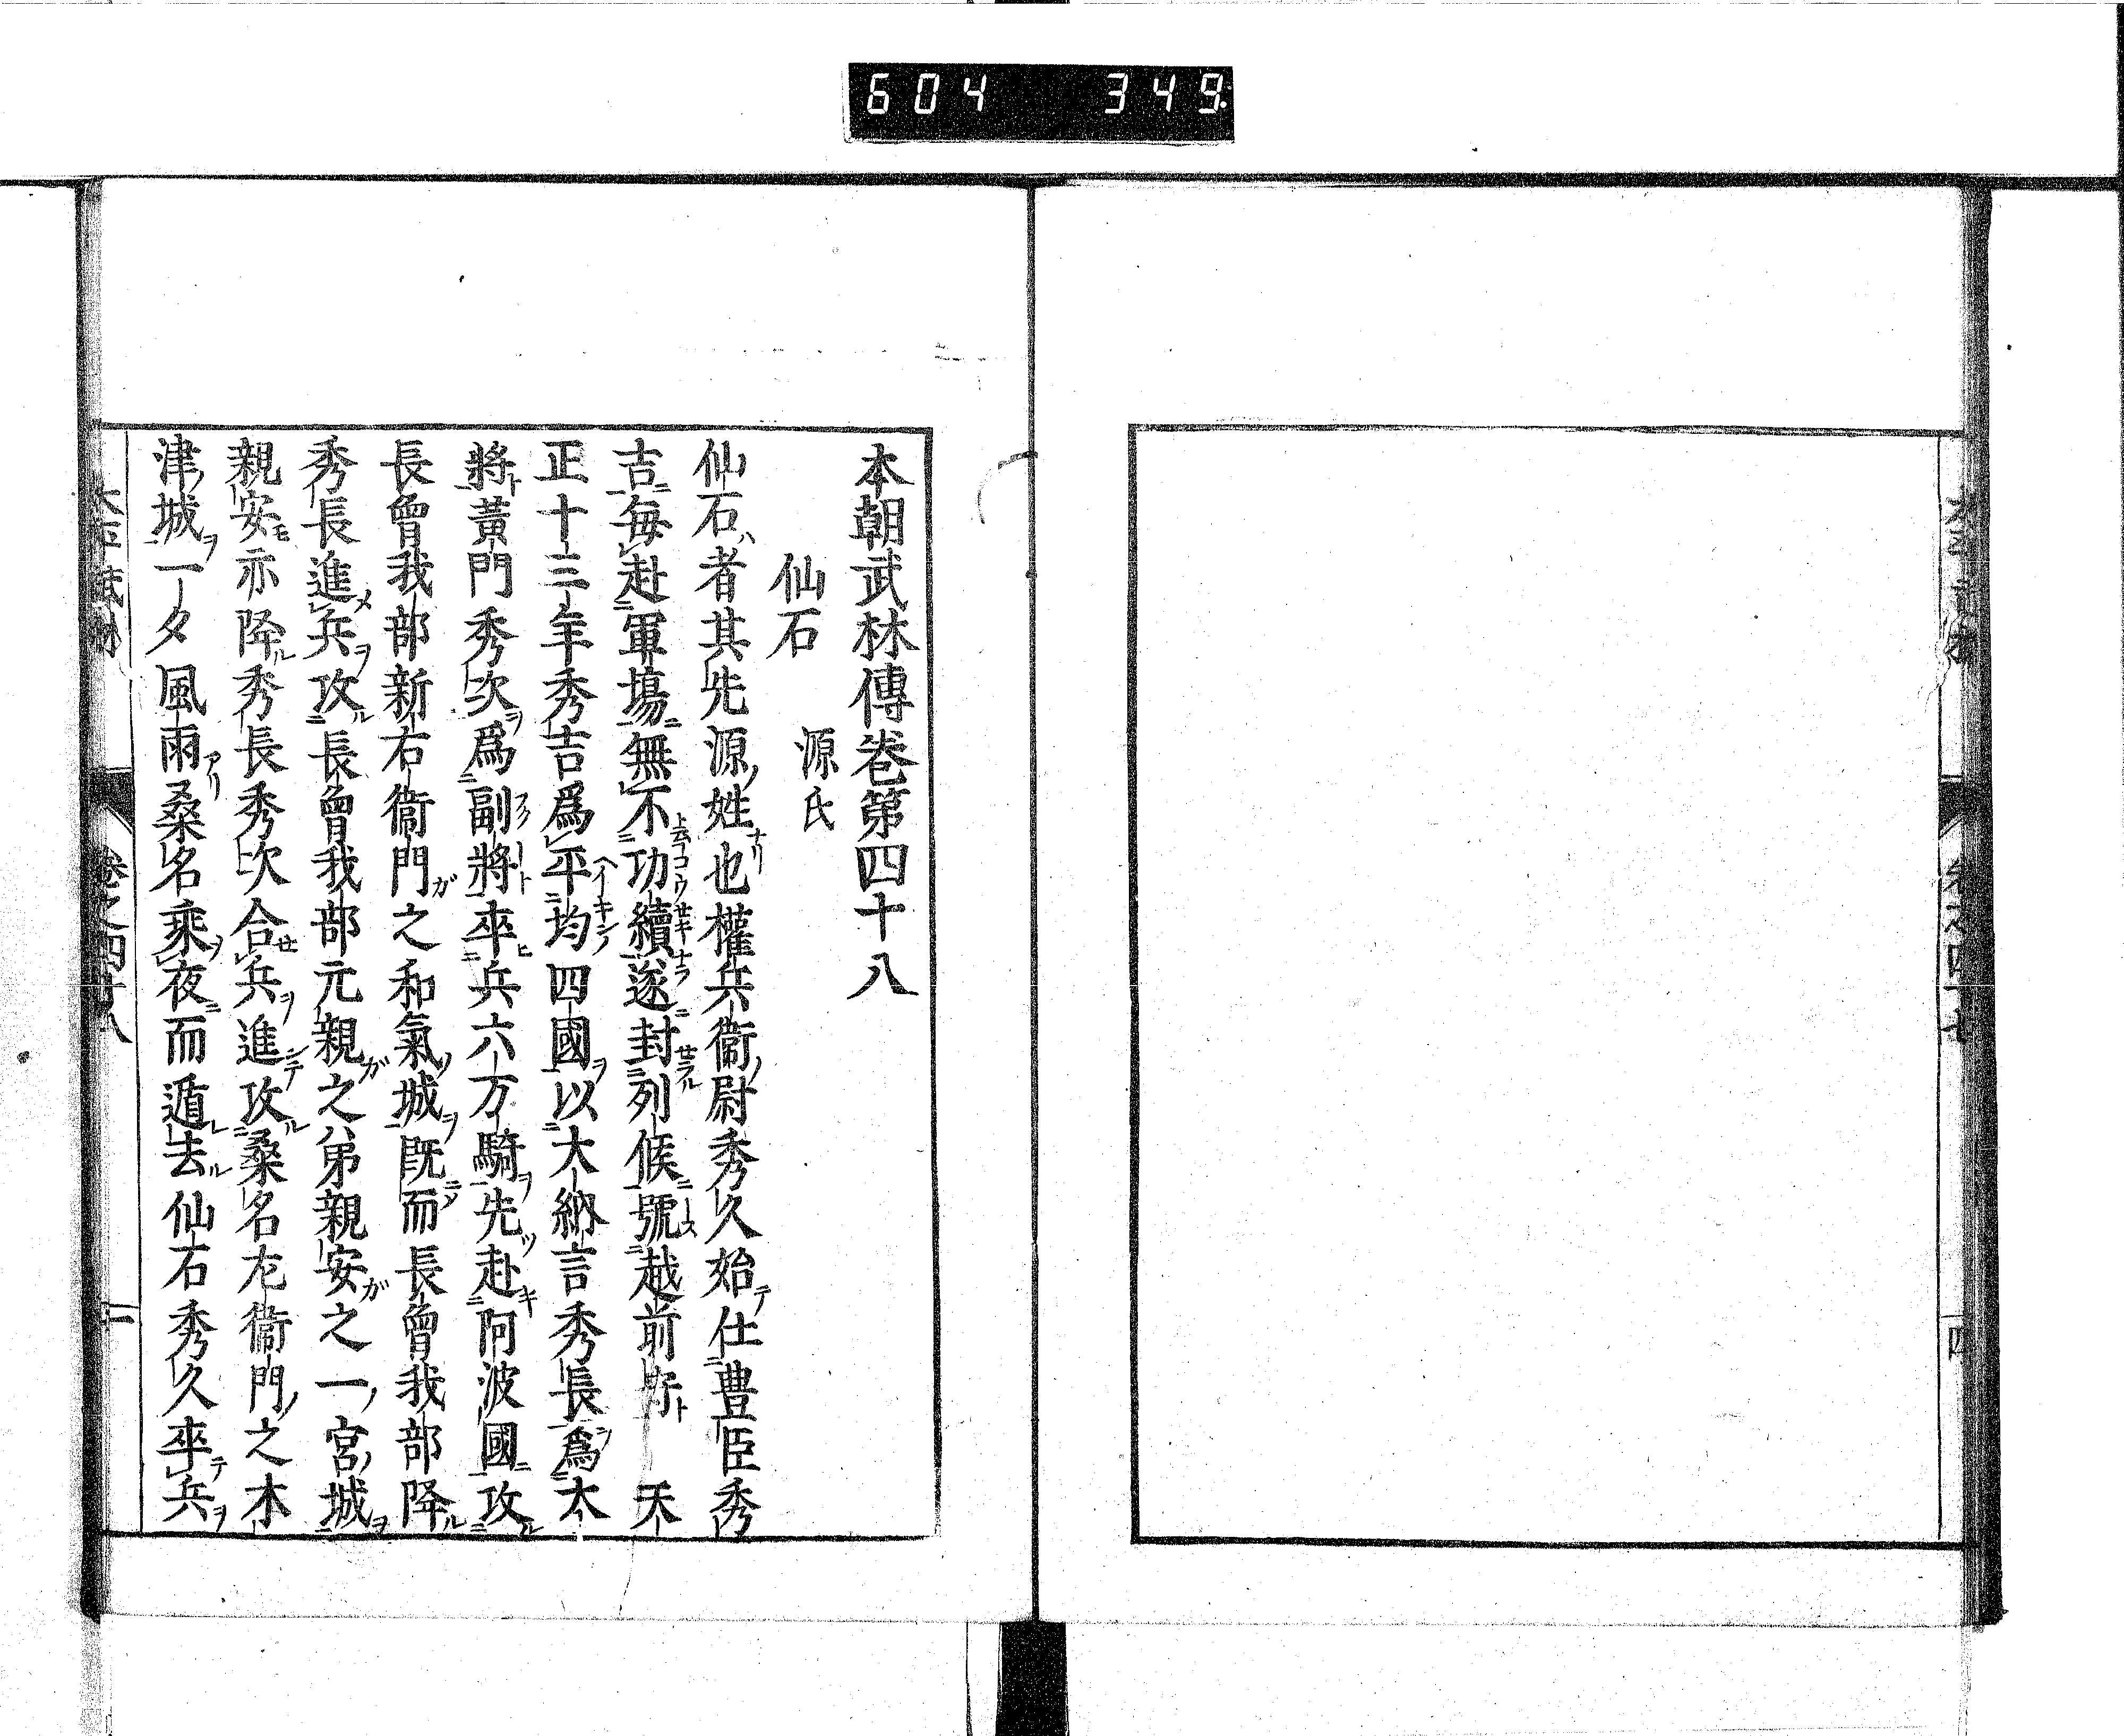 604 349
本朝武林傳巻第四十八
仙石 源氏
仙石者其先源姓也權兵衞尉秀久始仕豊臣秀
吉毎赴軍塲無不功續遂封列候號越前 天
正十三年秀吉爲平均四國以大納言秀長爲大
將黃門秀次爲副將卒兵六万騎先赴阿波國攻
長曾我部新右衞門之和氣城既而長曾我部降
秀長進兵攻長曾我部元親之弟親安之一宮城
親安亦降秀長秀次合兵進攻桑名左衞門之木
津城一夕風雨桑名乘夜而遁去仙石秀久卒兵
巻之四十八 一
四